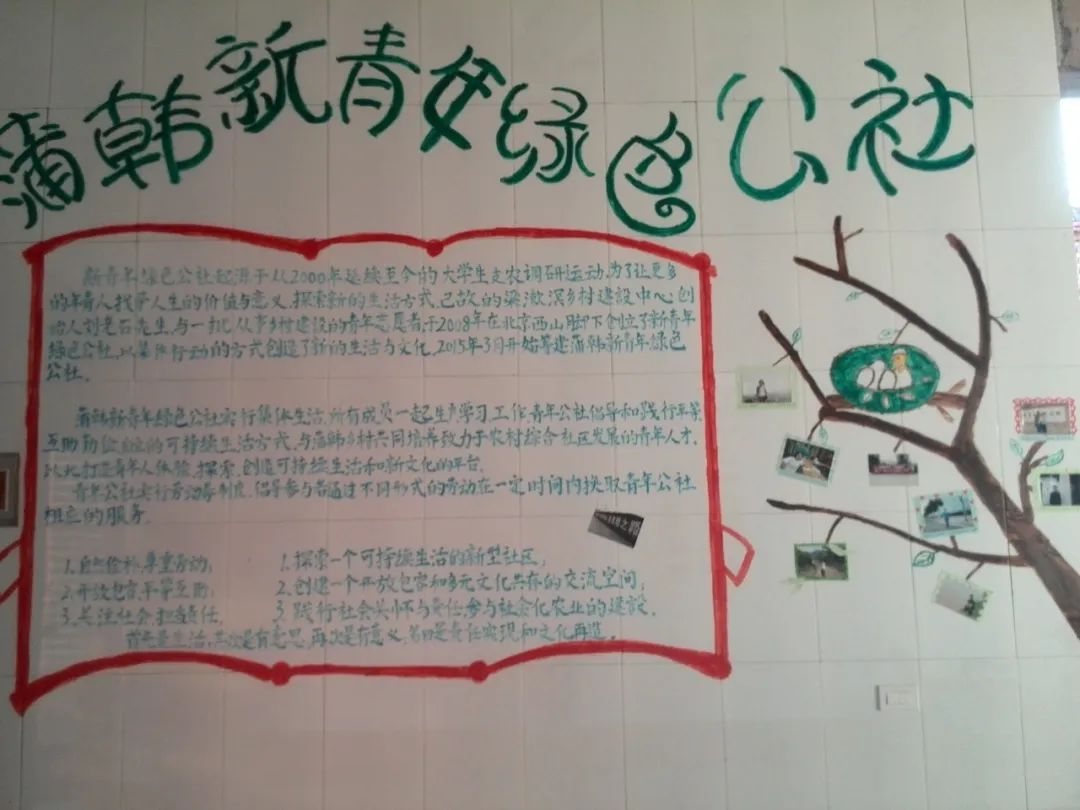 蒲韩新青年绿色公社
新青年绿色公社起源于从2000年延续至今的大学生支农调研运动,为了让更多
的年青人找寻人生的价值与意义,探索新的生活方式,已故的梁漱溟乡村建设中心创
始人刘老石先生,与一批从事乡村建设的青年志愿者,于2008年在北京西山脚下创立了新青年
绿色公社,以集体行动的方式创造了新的生活与文化,2015年3月开始筹建蒲韩新青年绿色
公社。
蒲韩新青年绿色公社实行集体生活,所有成员一起生产学习工作,青年公社倡导和践行平等
互助勤俭自然的可持续生活方式,与蒲韩乡村共同培养致力于农村综合社区发展的青年人才,
以此打造青年人体验,探索,创造可持续生活和新文化的平台。
青年公社实行劳动券制度,倡导参与者通过不同形式的劳动在一定时间内换取青年公社
相应的服务。
1.自然俭朴,尊重劳动; 1.探索一个可持续生活的新型社区;
2.开放包容,平等互助; 2.创建一个开放包容和多元文化共存的交流空间;
3.关注社会,担当责任. 3.践行社会关怀与责任,参与社会化农业的建设。
首先是生活,其次是有意思,再次是有意义,第四是责任实现和文化再造。
之路